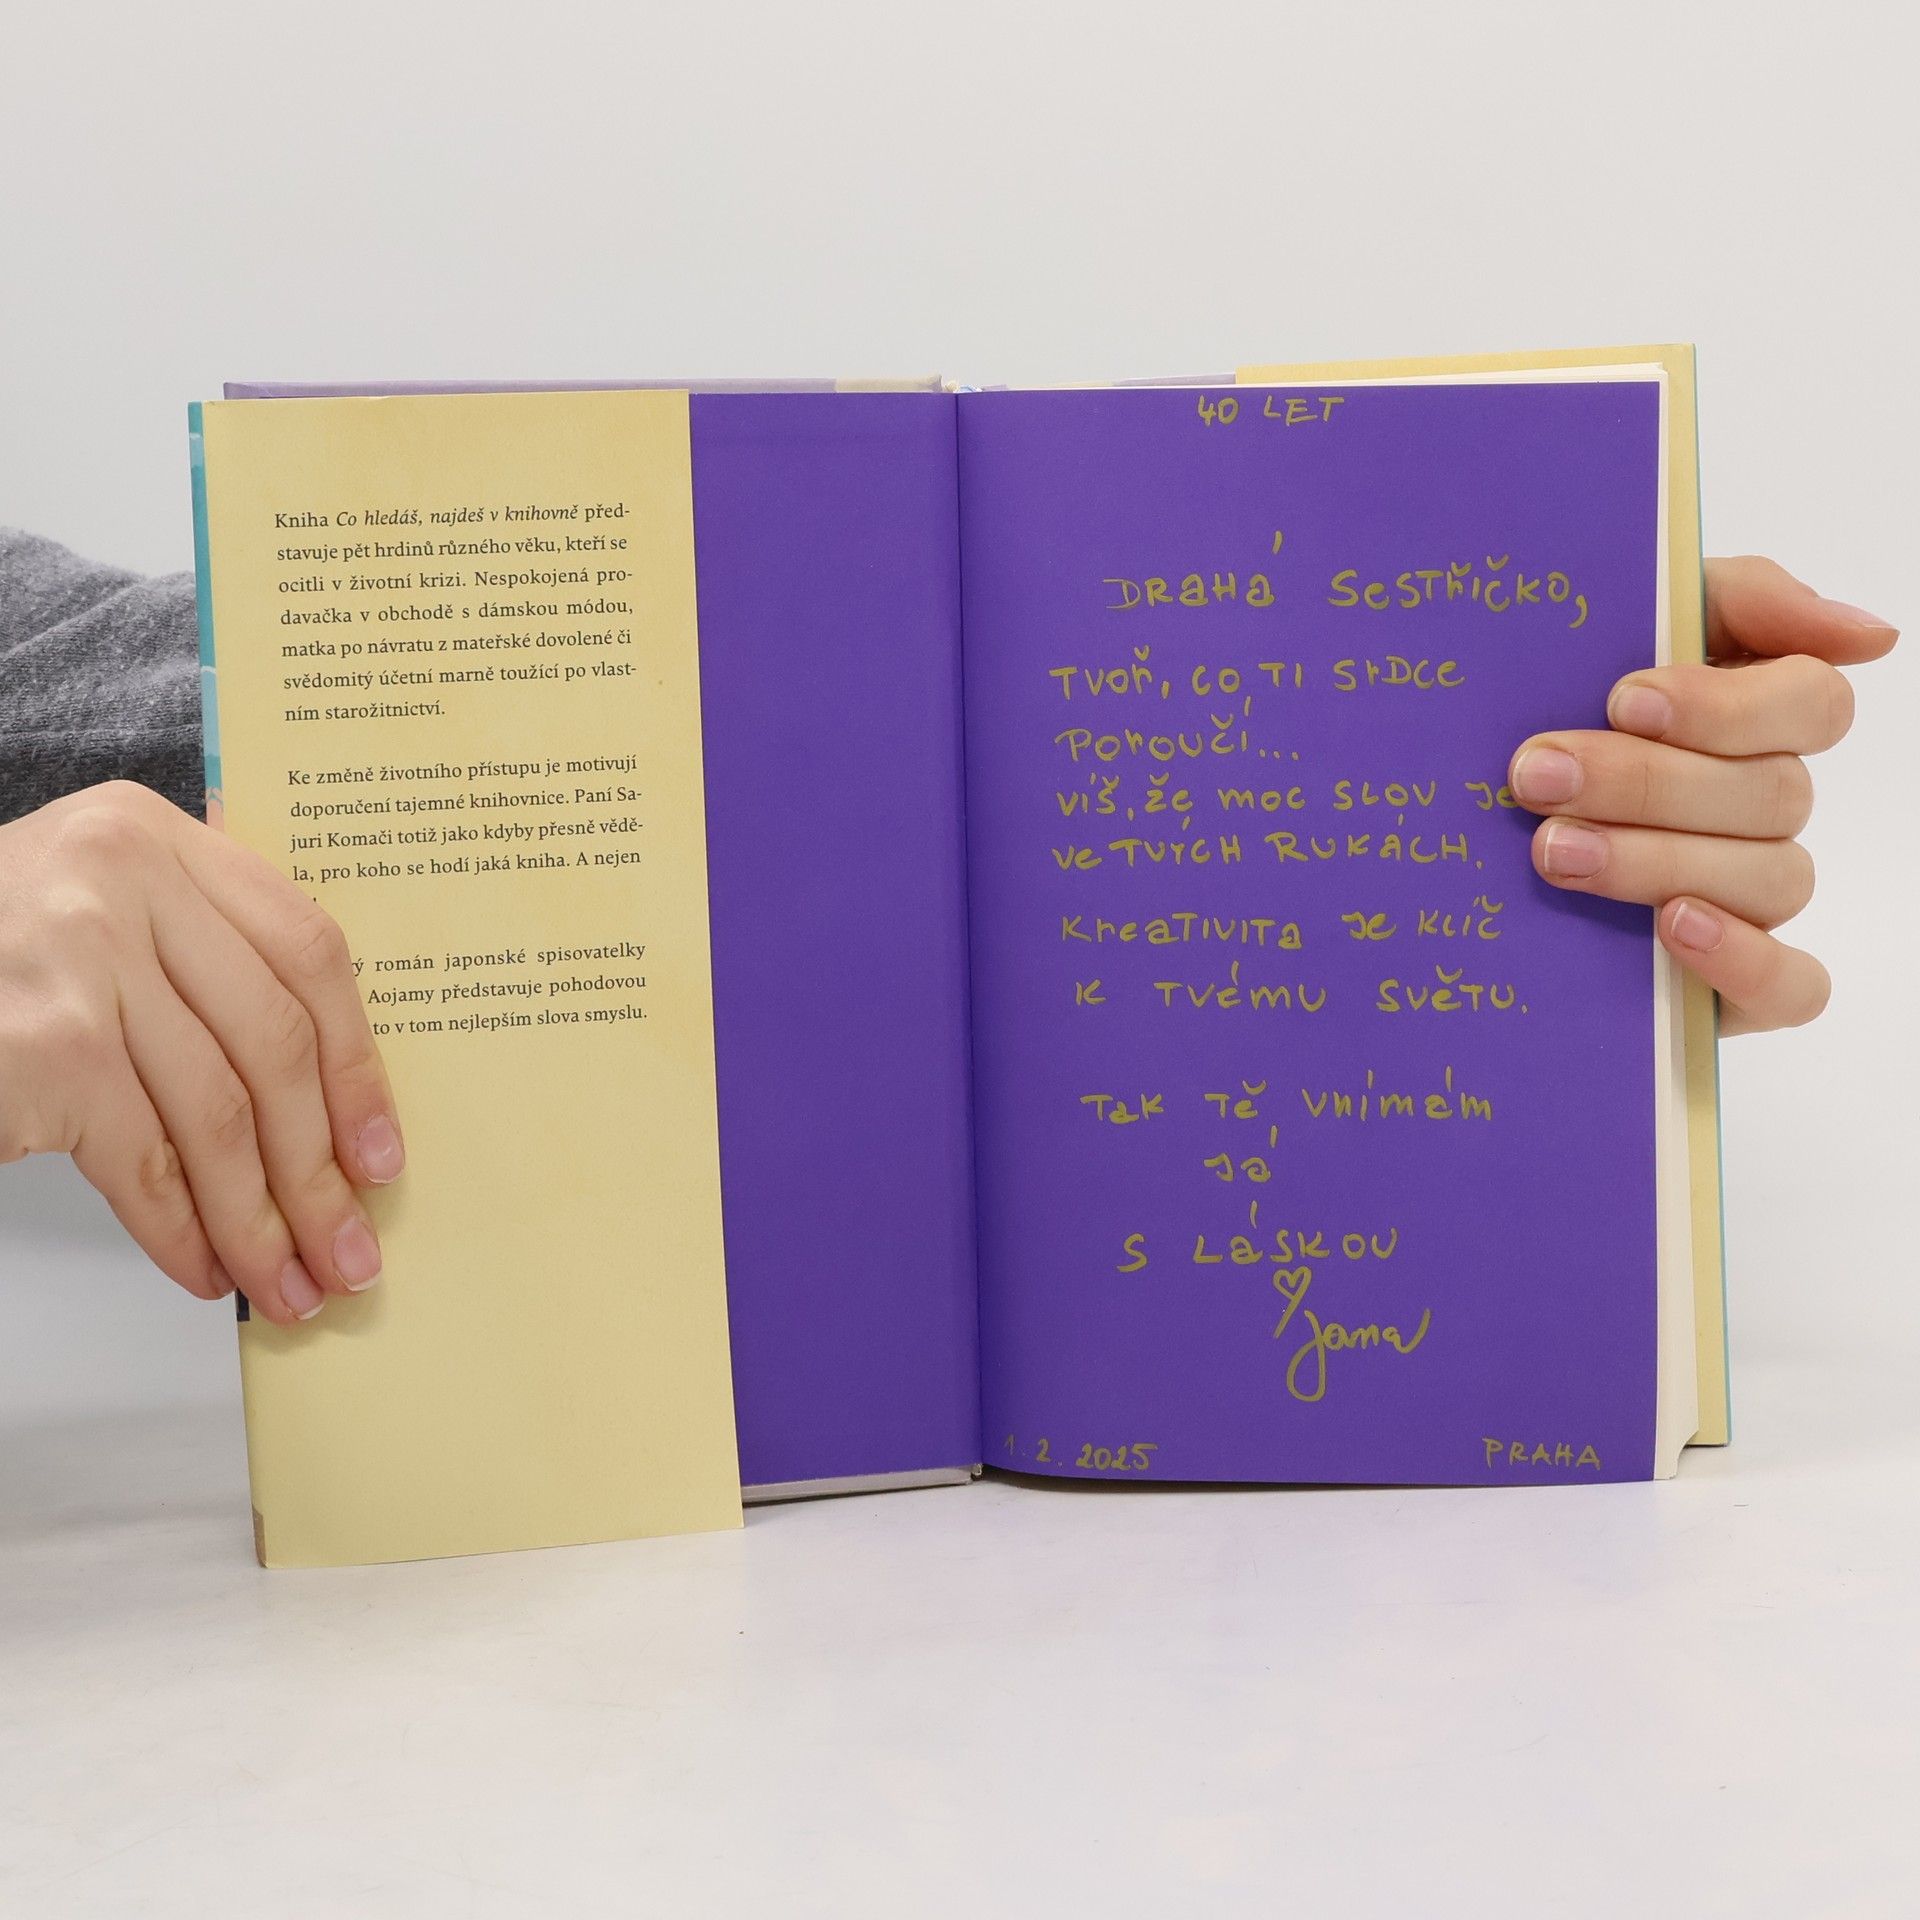 Kniha Co hledáš, najdeš v knihovně před-
stavuje pět hrdinů různého věku, kteří se
ocitli v životní krizi. Nespokojená pro-
davačka v obchodě s dámskou módou,
matka po návratu z mateřské dovolené či
svědomitý účetní marně toužící po vlast-
ním starožitnictví.
Ke změně životního přístupu je motivují
doporučení tajemné knihovnice. Paní Sa-
juri Komači totiž jako kdyby přesně vědě-
la, pro koho se hodí jaká kniha. A nejen
román japonské spisovatelky
Aojamy představuje pohodovou
to v tom nejlepším slova smyslu.
40 LET
DRAHÁ SESTŘIČKO,
TVOŘ, CO TI SRDCE
POROUČÍ...
VÍŠ, ŽE MOC SLOV JE
VE TVÝCH RUKÁCH.
KREATIVITA JE KLÍČ
K TVÉMU SVĚTU.
TAK TĚ VNÍMÁM
JÁ
S LÁSKOU
Jana
1. 2. 2025
PRAHA